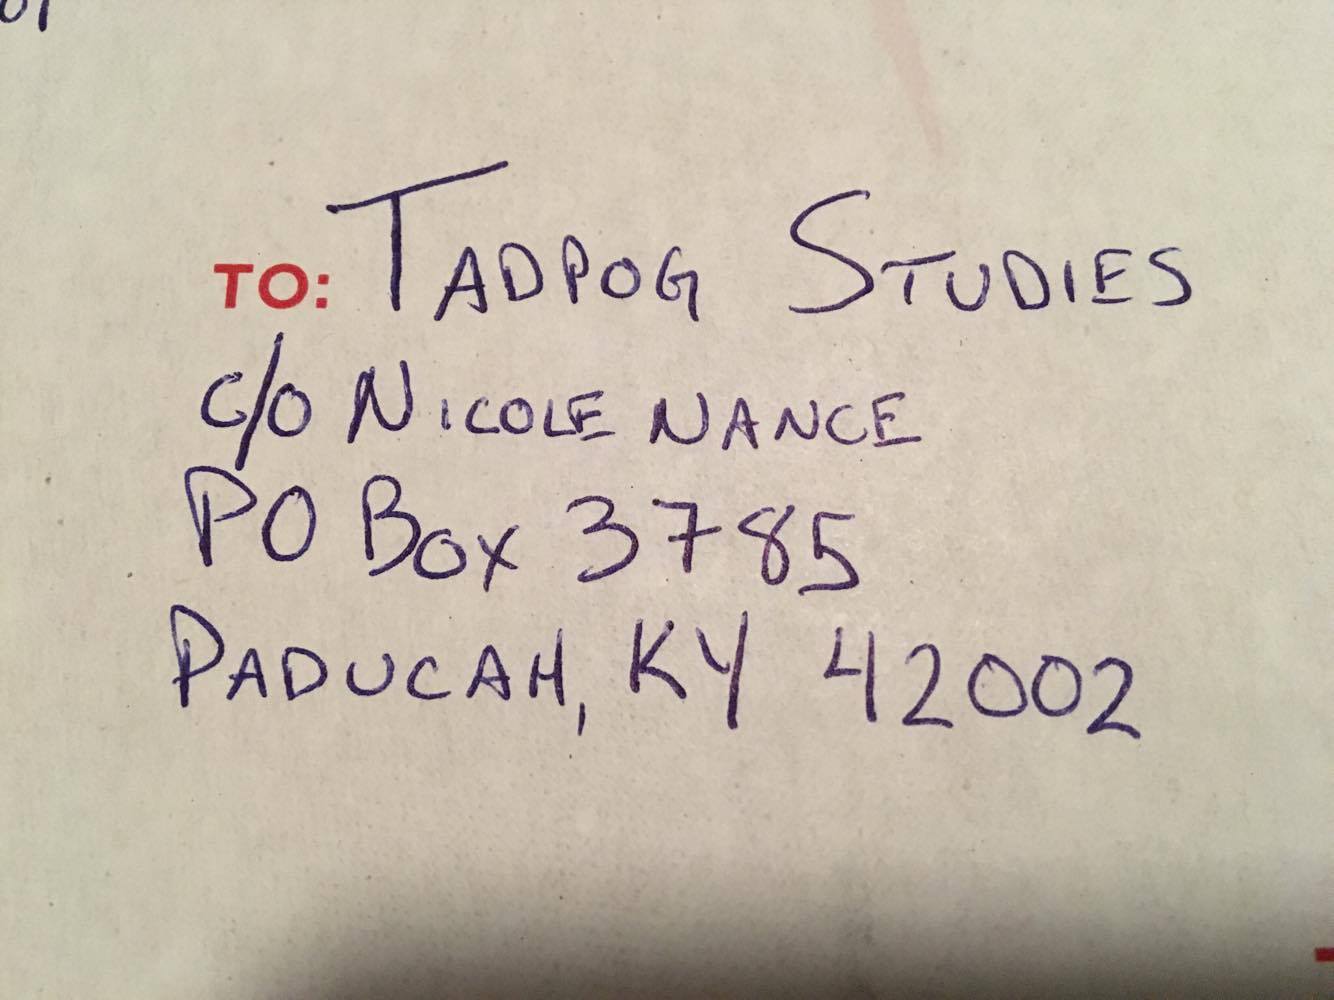 TO: TADPOG STUDIES
C/O NICOLE NANCE
PO BOX 3785
PADUCAH, KY 42002